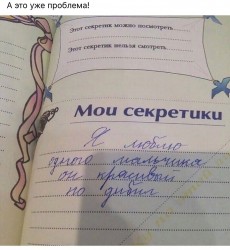 А это уже проблема!
Этот секретик можно посмотреть
Этот секретик нельзя смотреть
Мои секретики
Я люблю
одного мальчика
он красивый
но дибил